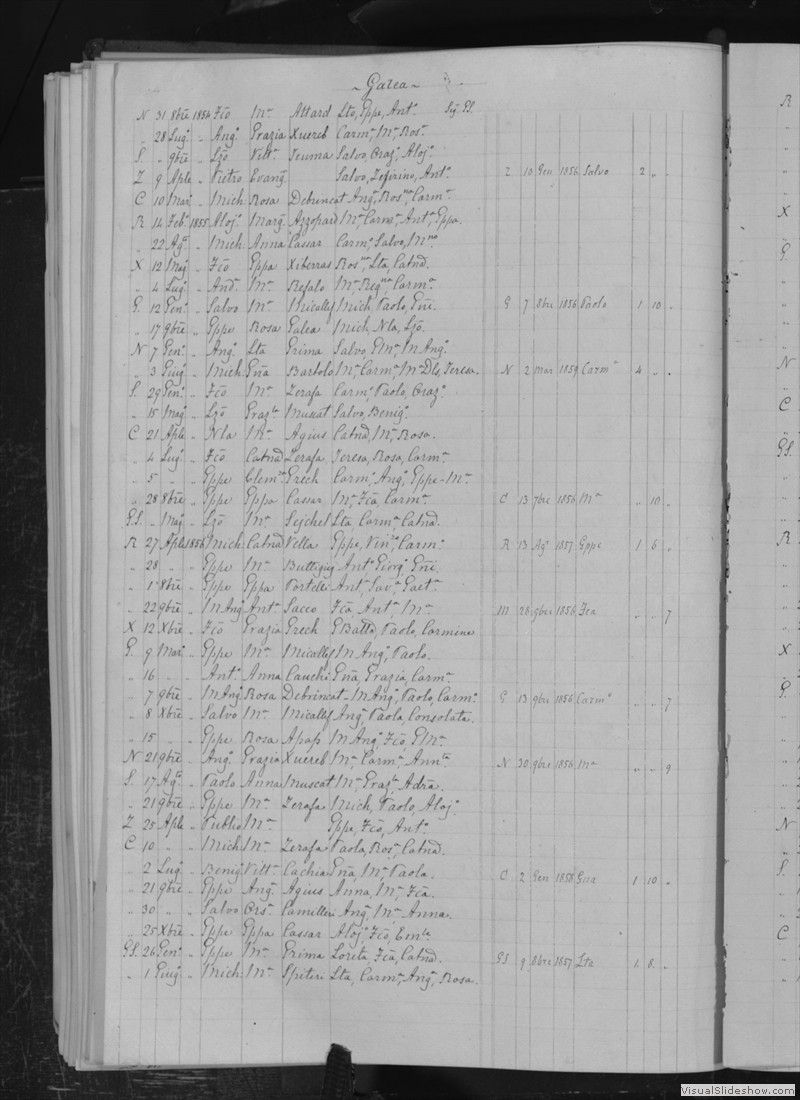 ~ Galea ~
N 31 8bre 1854 Fco Ma Attard Lto, Eppe, Anta Sig. GS.
„ 28 Lugo „ Ango Grazia Xuereb Carma, Ma, Rosa
S. „ 9bre „ Lzo Vitta Teuma Salvo, Grazo, Alojo
Z 9 Aple „ Pietro Evang. Salvo, Zeferino, Anto Z 10 Gen 1856 Salvo 2 „ „
C 10 Maro „ Mich: Rosa Debrincat Ango, Rosna, Carma
R 14 Febo 1855 Alojo Marg. Azzopard Ma, Carma, Anta, Eppa.
„ 22 Ago „ Mich: Anna Cassar Carmo, Salvo,
X 12 Mago „ Fco Eppa Xiberras Rosna, Lta, Catnd.
„ 4 Lugo „ And. Ma Refalo Ma, Regna, Carma
G. 12 Geno „ Salvo Ma Micallef Mich, Paolo, Eni. G 7 Obre 1856 Paolo 1 10 „
„ 17 9bre „ Eppe Rosa Galea Mich, Nla, Lzo.
N 7 Geno „ Ango Lta Grima Salvo, GMa, MAngo
„ 3 Giugo „ Mich: Gna Bartolo Ma, Carma, Ma Dls, Teresa. N 2 mar 1859 Carmo 4 „ „
S. 29 Geno „ Fco Ma Zerafa Carmo, Paolo, Grazo
„ 15 Mago „ Lzo Graza Muscat Salvo, Benigo
C 21 Aple „ Nla Ma Agius Catnd, Ma, Rosa.
„ 4 Lugo „ Fco Catnd Zerafa Teresa, Rosa, Carma
„ 5 „ „ Eppe Clema Grech Carmo, Ango, Eppe-Ma
„ 28 8bre „ Eppe Eppa Cassar Ma, Fca, Carma C 13 7bre 1856 Ma „ 10 „
GS. „ Mago „ Lzo Ma Sejchel Lta, Carma, Catnd.
R 27 Aple 1856 Mich: Catnd Vella Eppe, Carmo R 13 Ago 1857 Eppe 1 6 „
„ 28 „ „ Eppe Ma Buttigieg Anto, Giorgo, Eni.
„ 1o 8bre „ Eppe Eppa Portelli Anto, Gaeta
„ 22 9bre „ MAngo Anta Sacco Fca, Anta, Ma M 28 9bre 1856 Fca „ „ 7
X 12 Xbre „ Fco Grazia Grech GBatta, Paolo, Carmina
G. 9 Maro „ Eppe Ma Micallef MAngo, Paolo.
„ 16 „ „ Anto Anna Cauchi Gna, Grazia, Carma
„ 7 9bre „ MAngo Rosa Debrincat MAngo, Paolo, Carmo G 13 9bre 1856 Carmo „ „ 7
„ 8 Xbre „ Salvo Ma Micallef Anga, Paola, Consolata.
„ 15 „ „ Eppe Rosa Apap MAngo, Fco, GMa
N 21 9bre „ Ango Grazia Xuereb Ma, Carma, N 30 9bre 1856 Ma „ „ 9
S. 17 Ago „ Paolo Anna Muscat Ma, Graza, Adna.
„ 21 9bre „ Eppe Ma Zerafa Mich, Paolo, Alojo
Z 25 Aple „ Publio Ma Eppe, Fco, Anto
C 10 „ „ Mich: Ma Zerafa Paola, Rosa, Catnd.
„ 2 Lugo „ Benigo Vitta Cachia Gna, Ma, Paola. C 2 Gen 1858 Gna 1 10 „
„ 21 9bre „ Eppe Anga Agius Anna, Ma, Fca.
„ 30 „ „ Salvo Orsa Camilleri Anga, Ma, Anna.
„ 25 Xbre „ Eppe Eppa Cassar Alojo, Fco,
GS. 26 Geno „ Eppe Ma Grima Loreta, Fca, Catnd. GS 9 Obre 1857 Lta 1 8 „
„ 1 Giugo „ Mich: Ma Spiteri Lta, Carma, Anga, Rosa.
R
X
G.
N
C
GS.
R
X
G.
N
S.
C
VisualSlideshow.com